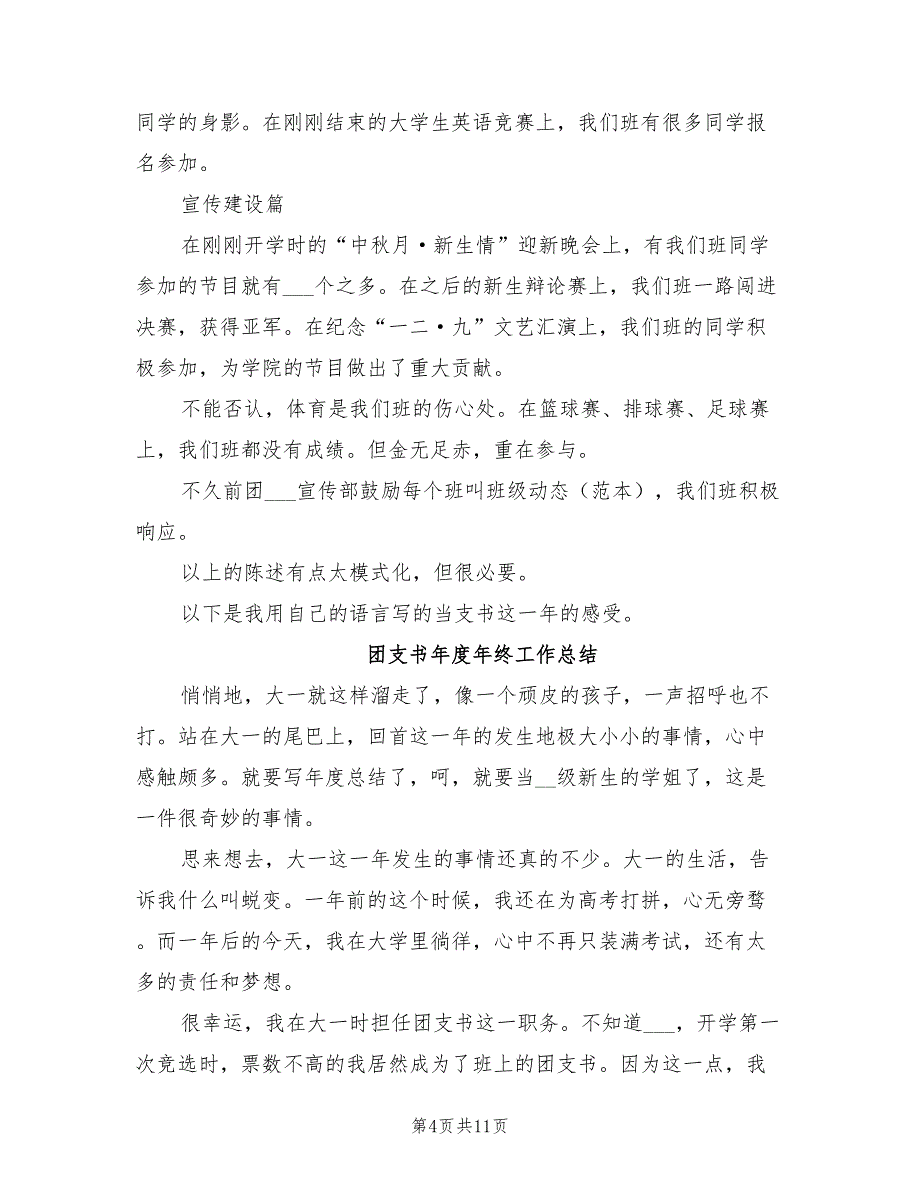 同学的身影。在刚刚结束的大学生英语竞赛上，我们班有很多同学报
名参加。
宣传建设篇
在刚刚开学时的“中秋月·新生情”迎新晚会上，有我们班同学
参加的节目就有___个之多。在之后的新生辩论赛上，我们班一路闯进
决赛，获得亚军。在纪念“一二·九”文艺汇演上，我们班的同学积
极参加，为学院的节目做出了重大贡献。
不能否认，体育是我们班的伤心处。在篮球赛、排球赛、足球赛
上，我们班都没有成绩。但金无足赤，重在参与。
不久前团___宣传部鼓励每个班叫班级动态（范本），我们班积极
响应。
以上的陈述有点太模式化，但很必要。
以下是我用自己的语言写的当支书这一年的感受。
团支书年度年终工作总结
悄悄地，大一就这样溜走了，像一个顽皮的孩子，一声招呼也不
打。站在大一的尾巴上，回首这一年的发生地极大小小的事情，心中
感触颇多。就要写年度总结了，呵，就要当__级新生的学姐了，这是
一件很奇妙的事情。
思来想去，大一这一年发生的事情还真的不少。大一的生活，告
诉我什么叫蜕变。一年前的这个时候，我还在为高考打拼，心无旁骛
。而一年后的今天，我在大学里徜徉，心中不再只装满考试，还有太
多的责任和梦想。
很幸运，我在大一时担任团支书这一职务。不知道___，开学第一
次竞选时，票数不高的我居然成为了班上的团支书。因为这一点，我
第4页共11页